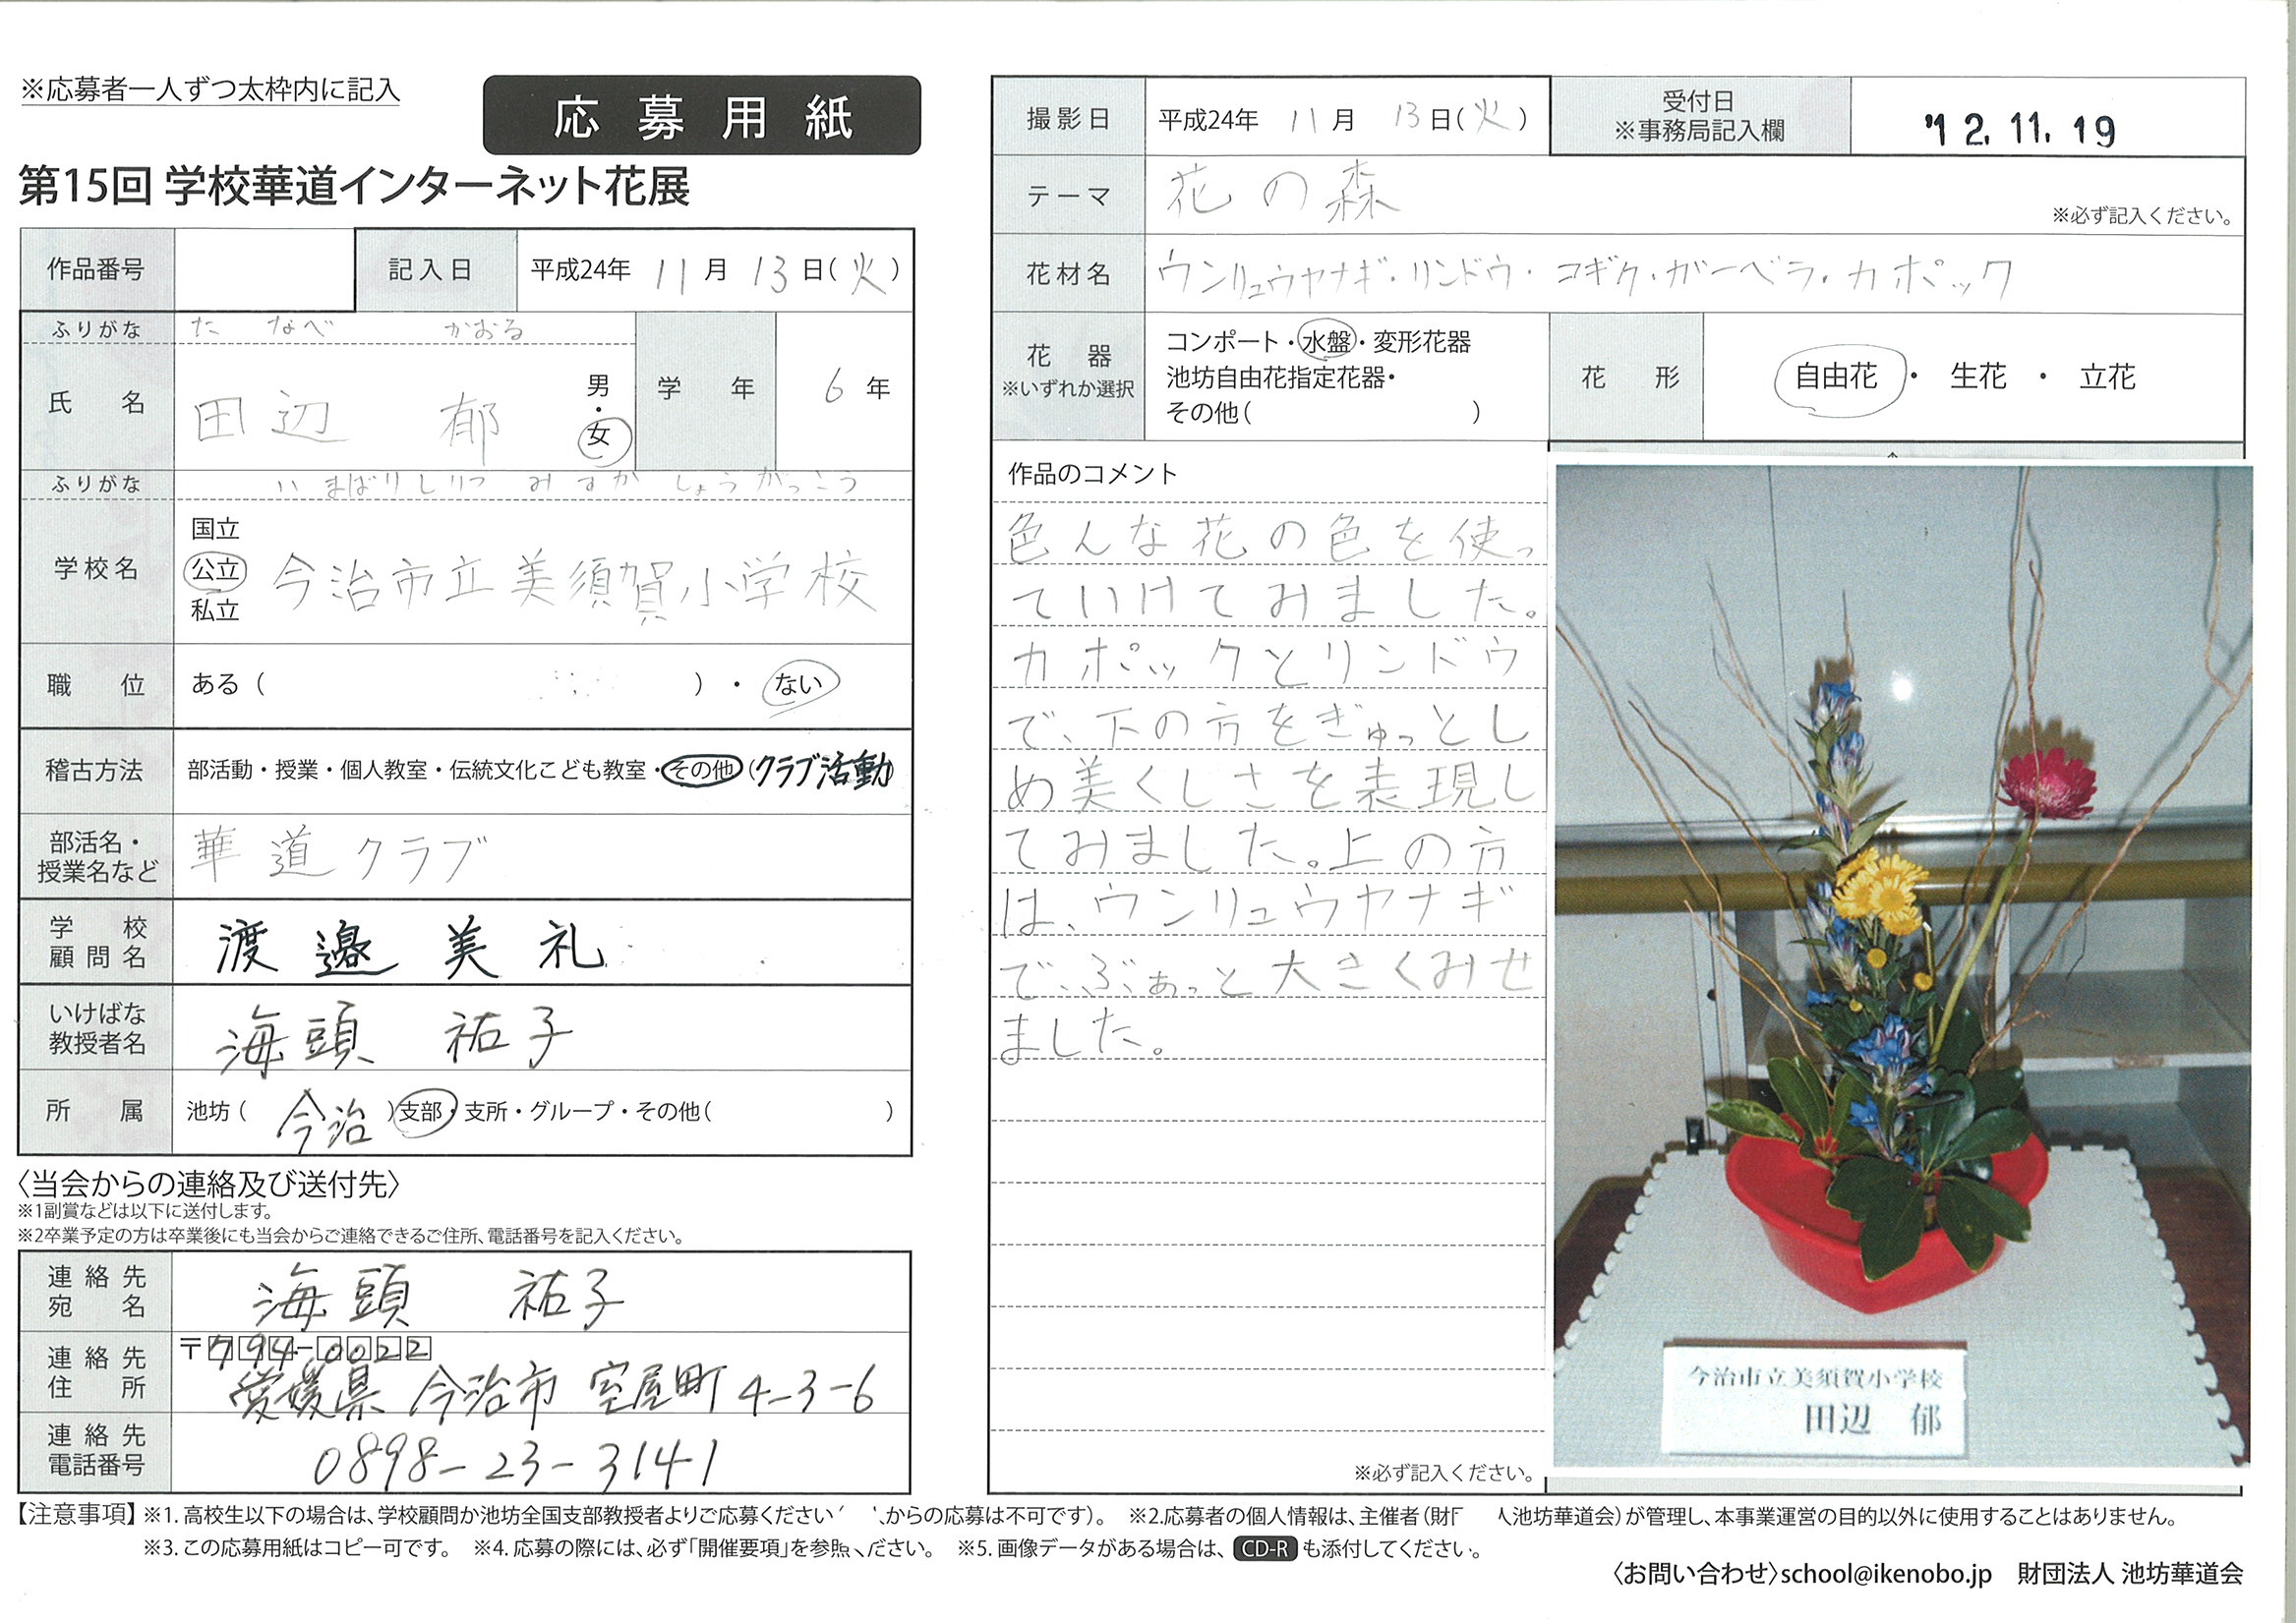 ※応募者一人ずつ太枠内に記入
応募用紙
第15回 学校華道インターネット花展
作品番号
記入日 平成24年 11月 13日(火)
ふりがな たなべ かおる
氏名 田辺 郁 男・女
学年 6年
ふりがな いまばりしりつ みすか しょうがっこう
学校名 国立 公立 私立 今治市立美須賀小学校
職位 ある( )・ない
稽古方法 部活動・授業・個人教室・伝統文化こども教室・その他(クラブ活動)
部活名・授業名など 華道クラブ
学校顧問名 渡邉美礼
いけばな教授者名 海頭 祐子
所属 池坊(今治)支部・支所・グループ・その他( )
〈当会からの連絡及び送付先〉
※1副賞などは以下に送付します。
※2卒業予定の方は卒業後にも当会からご連絡できるご住所、電話番号を記入ください。
連絡先宛名 海頭 祐子
連絡先住所 〒794-0022
愛媛県今治市室屋町4-3-6
連絡先電話番号 0898-23-3141
撮影日 平成24年 11月 13日(火)
受付日 ※事務局記入欄 '12.11.19
テーマ 花の森 ※必ず記入ください。
花材名 ウンリュウヤナギ・リンドウ・コギク・ガーベラ・カポック
花器 ※いずれか選択
コンポート・水盤・変形花器
池坊自由花指定花器・
その他( )
花形 自由花・生花・立花
作品のコメント
色んな花の色を使っ
ていけてみました。
カポックとリンドウ
で、下の方をぎゅっとし
め美くしさを表現し
てみました。上の方
は、ウンリュウヤナギ
で、ぶぁっと大きくみせ
ました。
※必ず記入ください。
今治市立美須賀小学校
田辺 郁
【注意事項】※1.高校生以下の場合は、学校顧問か池坊全国支部教授者よりご応募ください 、からの応募は不可です)。 ※2.応募者の個人情報は、主催者(財 人池坊華道会)が管理し、本事業運営の目的以外に使用することはありません。
※3.この応募用紙はコピー可です。 ※4.応募の際には、必ず「開催要項」を参照ください。 ※5.画像データがある場合は、CD-Rも添付してください。
〈お問い合わせ〉school@ikenobo.jp 財団法人 池坊華道会